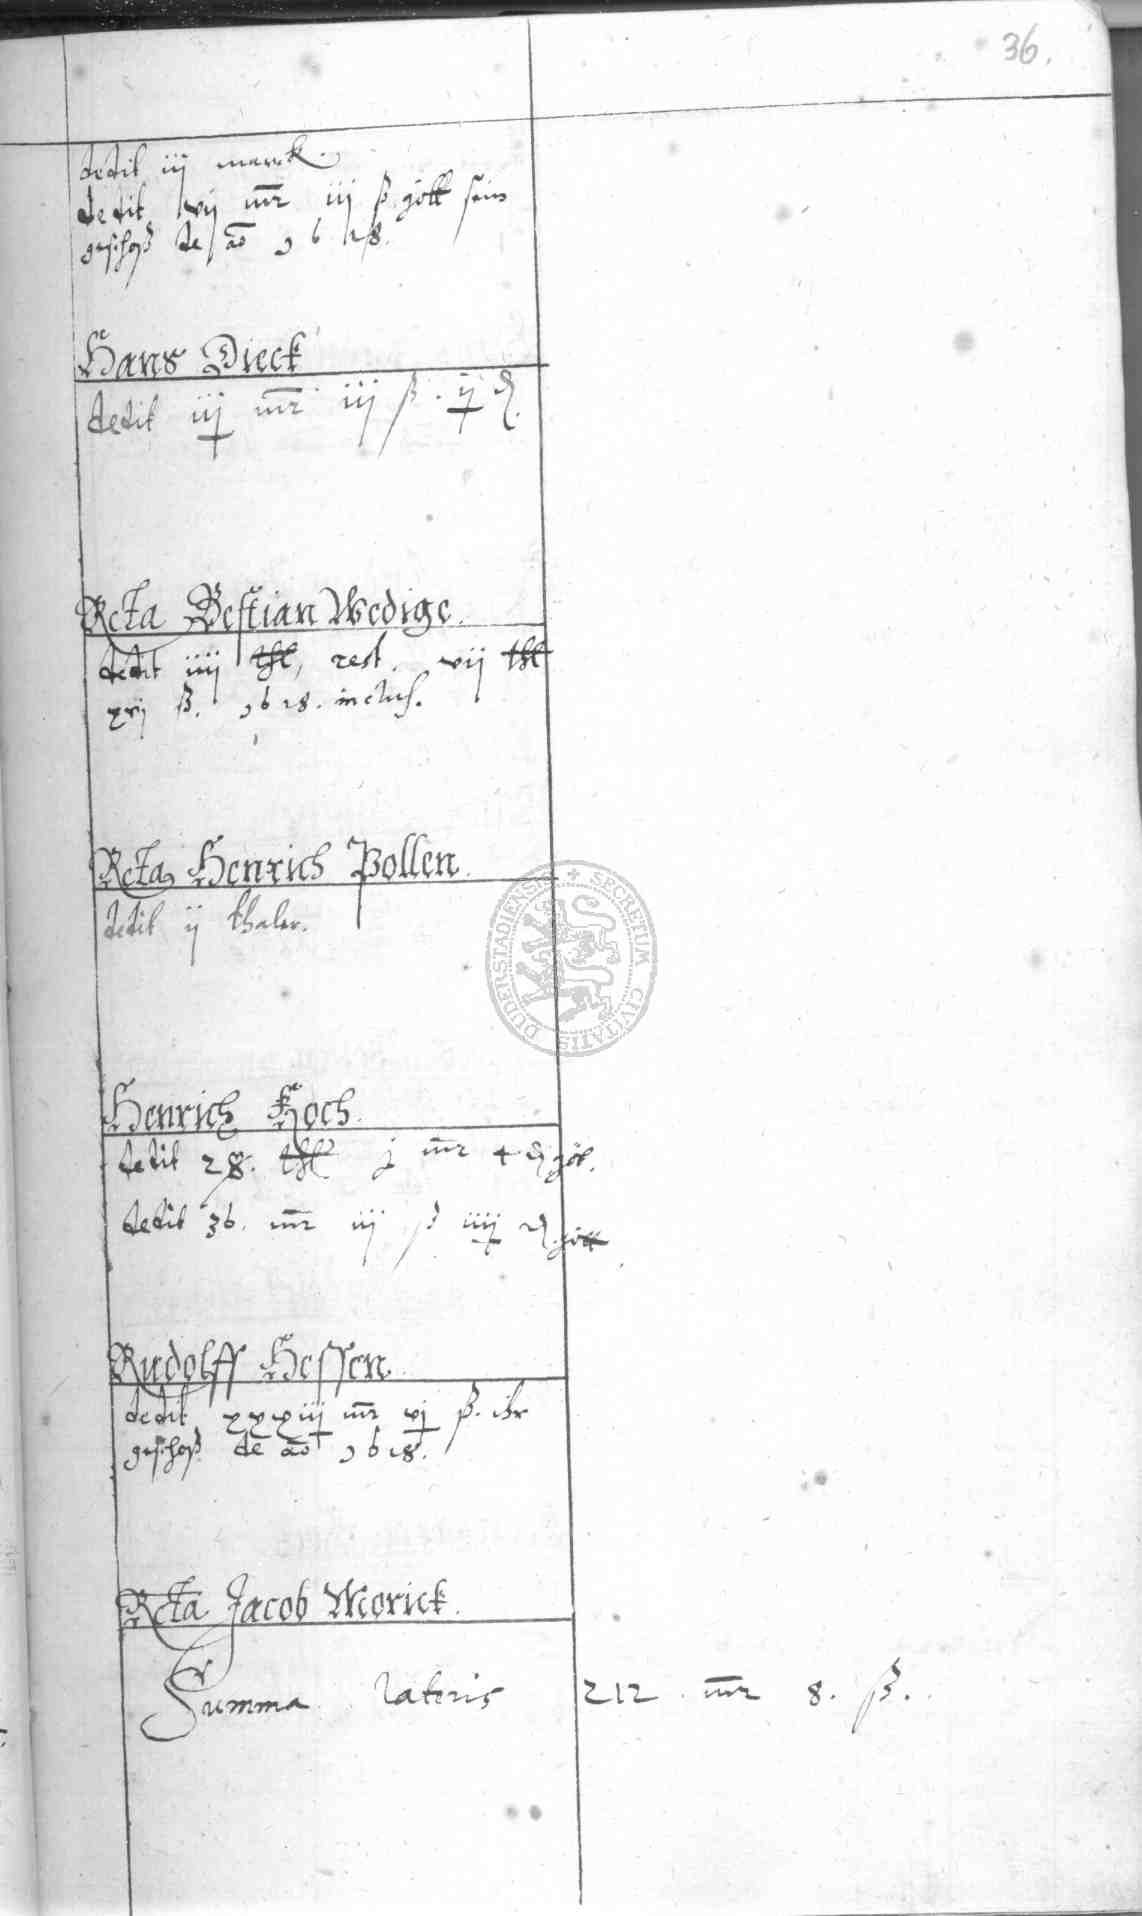 36.
dedit iij marck.
dedit lvij mr iij ß gött sein
geschoß de ao 1618.
Hans Dieck
dedit iij mr iij ß. ij d.
Rcta Bestian Wedige.
dedit iiij thl, rest. vij thl
xvij ß. 1618. inclus.
Rcta Henrich Pollen.
dedit ij thaler.
Henrich Koch.
dedit 28. thl j mr 4 d göt.
dedit 36. mr iij ß iiij d. gött
Rudolff Hessen.
dedit xxxiij mr vj ß. ihr
geschoß de ao 1618.
Rcta Jacob Worick.
Summa lateris 212 mr 8. ß.
SECRETUM CIVITATIS DUDERSTADIENSIS